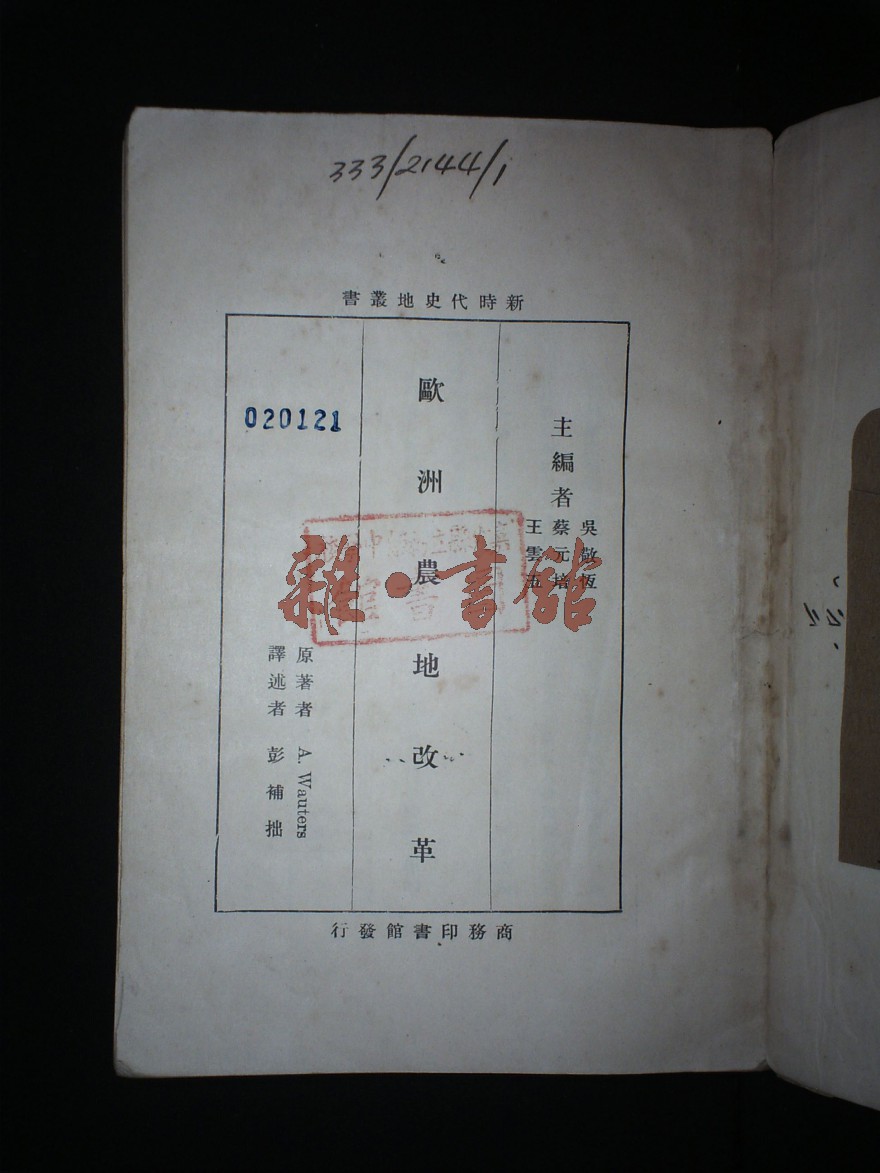 333/2144/1
新時代史地叢書
主編者
吳敬恆
蔡元培
王雲五
歐洲農地改革
020121
原著者 A. Wauters
譯述者 彭補拙
商務印書館發行
雜·書館